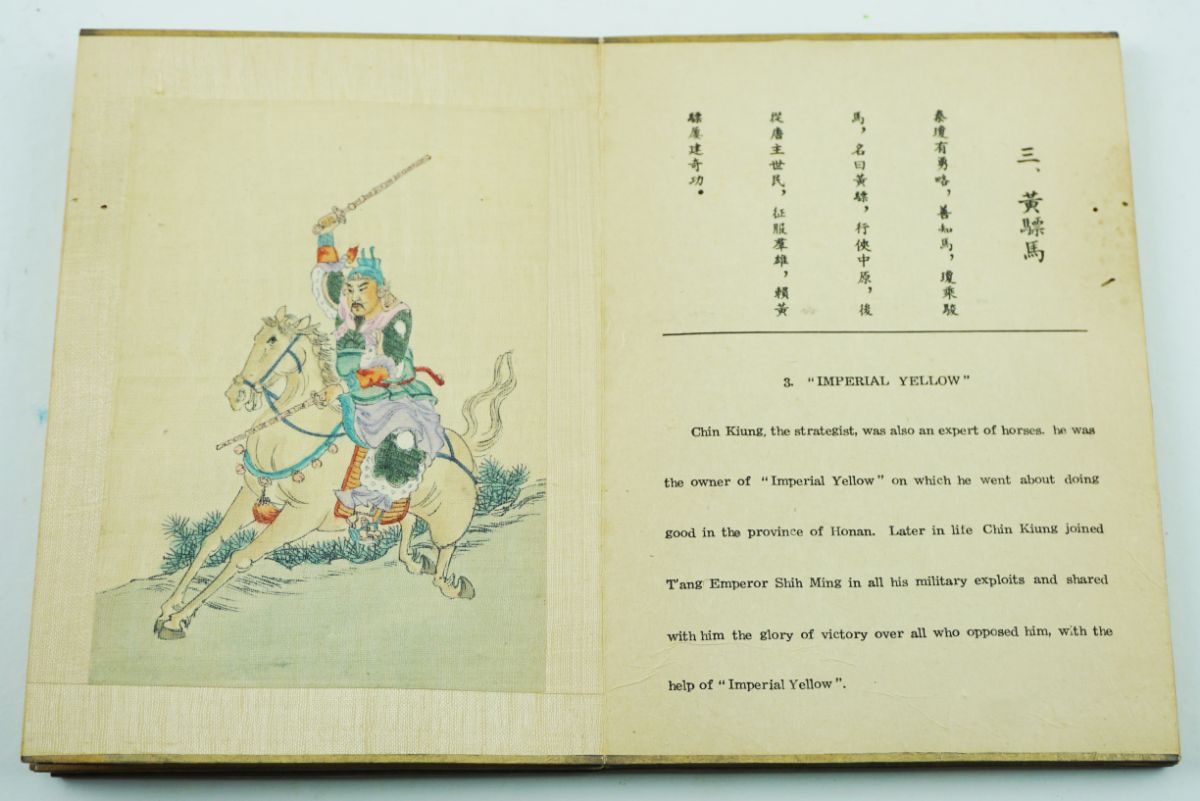 三、黃驃馬
秦瓊有勇略，善知馬，瓊乘駿
馬，名曰黃驃，行俠中原，後
從唐主世民，征服羣雄，賴黃
驃屢建奇功。
3. "IMPERIAL YELLOW"
Chin Kiung, the strategist, was also an expert of horses. he was
the owner of "Imperial Yellow" on which he went about doing
good in the province of Honan. Later in life Chin Kiung joined
T'ang Emperor Shih Ming in all his military exploits and shared
with him the glory of victory over all who opposed him, with the
help of "Imperial Yellow".